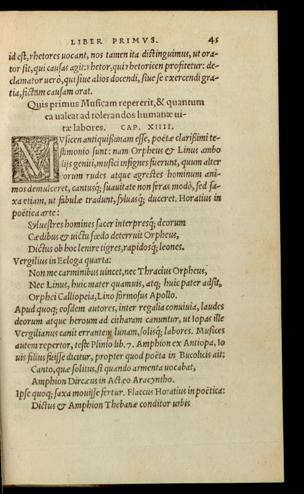 LIBER PRIMVS. 45
id est, rhetores uocant, nos tamen ita distinguimus, ut ora-
tor sit, qui causas agit: rhetor, qui rhetoricen profitetur: de-
clamator uerò, qui siue alios docendi, siue se exercendi gra-
tia, fictam causam orat.
Quis primus Musicam repererit, & quantum
ea ualeat ad tolerandos humanæ ui-
tæ labores. CAP. XIIII.
MVsicen antiquissimam esse, poëtæ clarissimi te-
stimonio sunt: nam Orpheus & Linus ambo
dijs geniti, musici insignes fuerunt, quum alter
eorum rudes atque agrestes hominum ani-
mos demulceret, cantusq; suauitate non feras modò, sed sa-
xa etiam, ut fabulæ tradunt, syluasq; duceret. Horatius in
poëtica arte:
Syluestres homines sacer interpresq; deorum
Cædibus & uictu fœdo deterruit Orpheus,
Dictus ob hoc lenire tigres, rapidosq; leones.
Vergilius in Ecloga quarta:
Non me carminibus uincet, nec Thracius Orpheus,
Nec Linus, huic mater quamuis, atq; huic pater adsit,
Orphei Calliopeia, Lino formosus Apollo.
Apud quoq; eosdem autores, inter regalia conuiuia, laudes
deorum atque heroum ad citharam canuntur, ut Iopas ille
Vergilianus canit errantem lunam, solisq; labores. Musices
autem repertor, teste Plinio lib. 7. Amphion ex Antiopa, Io
uis filius fuisse dicitur, propter quod poëta in Bucolicis ait:
Canto, quæ solitus, si quando armenta uocabat,
Amphion Dircæus in Actæo Aracyntho.
Ipse quoq; saxa mouisse fertur. Flaccus Horatius in poëtica:
Dictus & Amphion Thebanæ conditor urbis